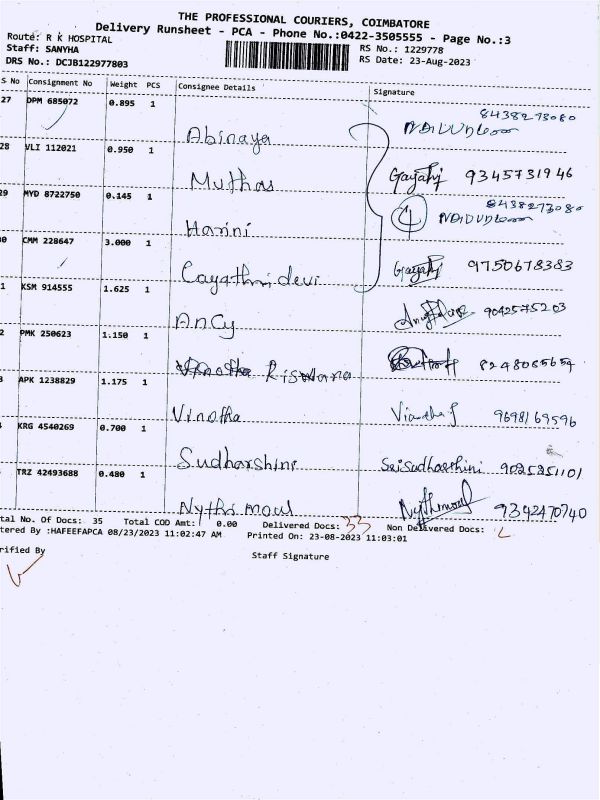 THE PROFESSIONAL COURIERS, COIMBATORE
Delivery Runsheet - PCA - Phone No.:0422-3505555 - Page No.:3
Route: R K HOSPITAL
RS No.: 1229778
Staff: SANYHA
RS Date: 23-Aug-2023
DRS No.: DCJB122977803
S No Consignment No Weight PCS Consignee Details Signature
27 DPM 685072 0.895 1
8438273080
Abinaya
28 VLI 112021 0.950 1
Muthas Gayatri 9345731946
29 MYD 8722750 0.145 1
8438273080
4
Harini
0 CMM 228647 3.000 1
Gayathri devi Gayatri 9750678383
1 KSM 914555 1.625 1
Ancy 9042575203
2 PMK 250623 1.150 1
Riswana 8248065654
3 APK 1238829 1.175 1
Vinotha 9698169596
KRG 4540269 0.700 1
Sudharshini SriSudharshini 9025251101
TRZ 42493688 0.480 1
Nythi mowl Nythimowl 9342470740
tal No. Of Docs: 35 Total COD Amt: 0.00 Delivered Docs: 33 Non Delivered Docs: 2
tered By :HAFEEFAPCA 08/23/2023 11:02:47 AM Printed On: 23-08-2023 11:03:01
rified By Staff Signature